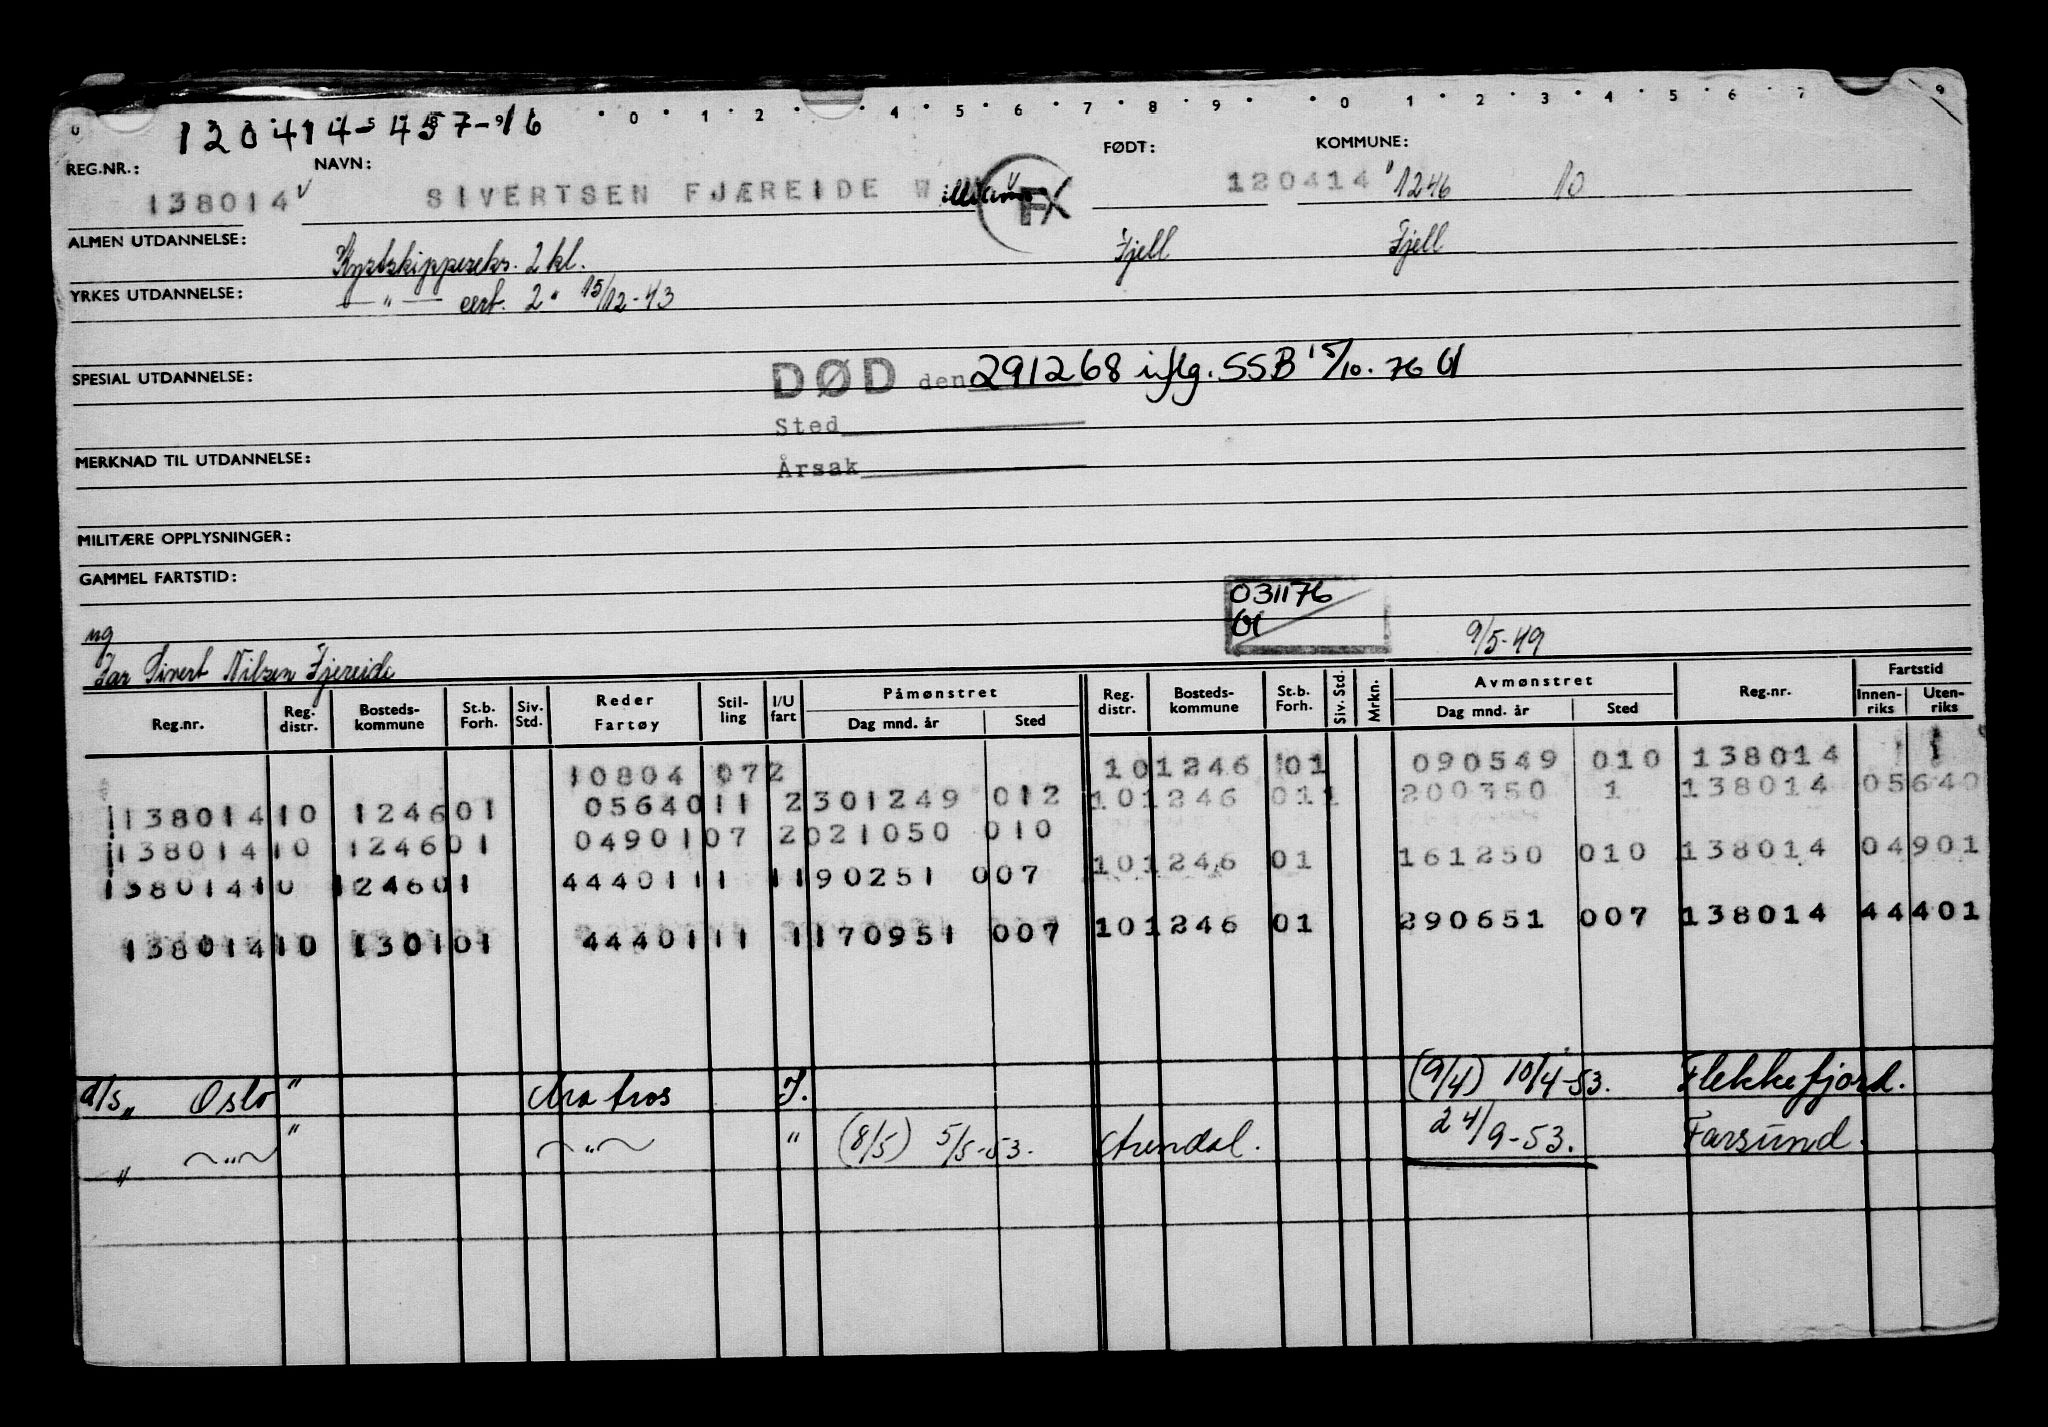 0 · 1 · 2 · · 4 · 5 · 6 · 7 · 8 · 9 · · 0 · 1 · 2 · 3 · 4 · 5 · 6 · 7 9
120414-457-16
REG.NR.: NAVN: FØDT: KOMMUNE:
138014 SIVERTSEN FJÆREIDE William FX 120414 1246 10
ALMEN UTDANNELSE: Kystskippereks. 2 kl. Fjell Fjell
YRKES UTDANNELSE: — " — cert. 2 " 15/12-43
SPESIAL UTDANNELSE: DØD den 291268 iflg. SSB 15/10.76
Sted
MERKNAD TIL UTDANNELSE: Årsak
MILITÆRE OPPLYSNINGER:
GAMMEL FARTSTID:
031176
ug 9/5-49
Far Sivert Nilsen Fjereide
Reg.nr. Reg. distr. Bosteds- kommune St.b. Forh. Siv. Std. Reder Fartøy Stil- ling I/U fart Påmønstret Dag mnd. år Sted Reg. distr. Bosteds- kommune St.b. Forh. Siv. Std. Mrkn. Avmønstret Dag mnd. år Sted Reg.nr. Fartstid Innen- riks Uten- riks
10804 072 101246 01 090549 010 138014
138014 10 124601 05640 11 2 301249 012 101246 011 200350 1 138014 05640
138014 10 124601 04901 07 2 021050 010 101246 01 161250 010 138014 04901
138014 10 124601 44401 11 1 190251 007 101246 01 290651 007 138014 44401
138014 10 130101 44401 11 1 170951 007
d/s " Oslo " Matros I. (9/4) 10/4-53. Flekkefjord.
" — " — " — " — " (8/5) 5/5-53. Arendal. 24/9-53. Farsund.